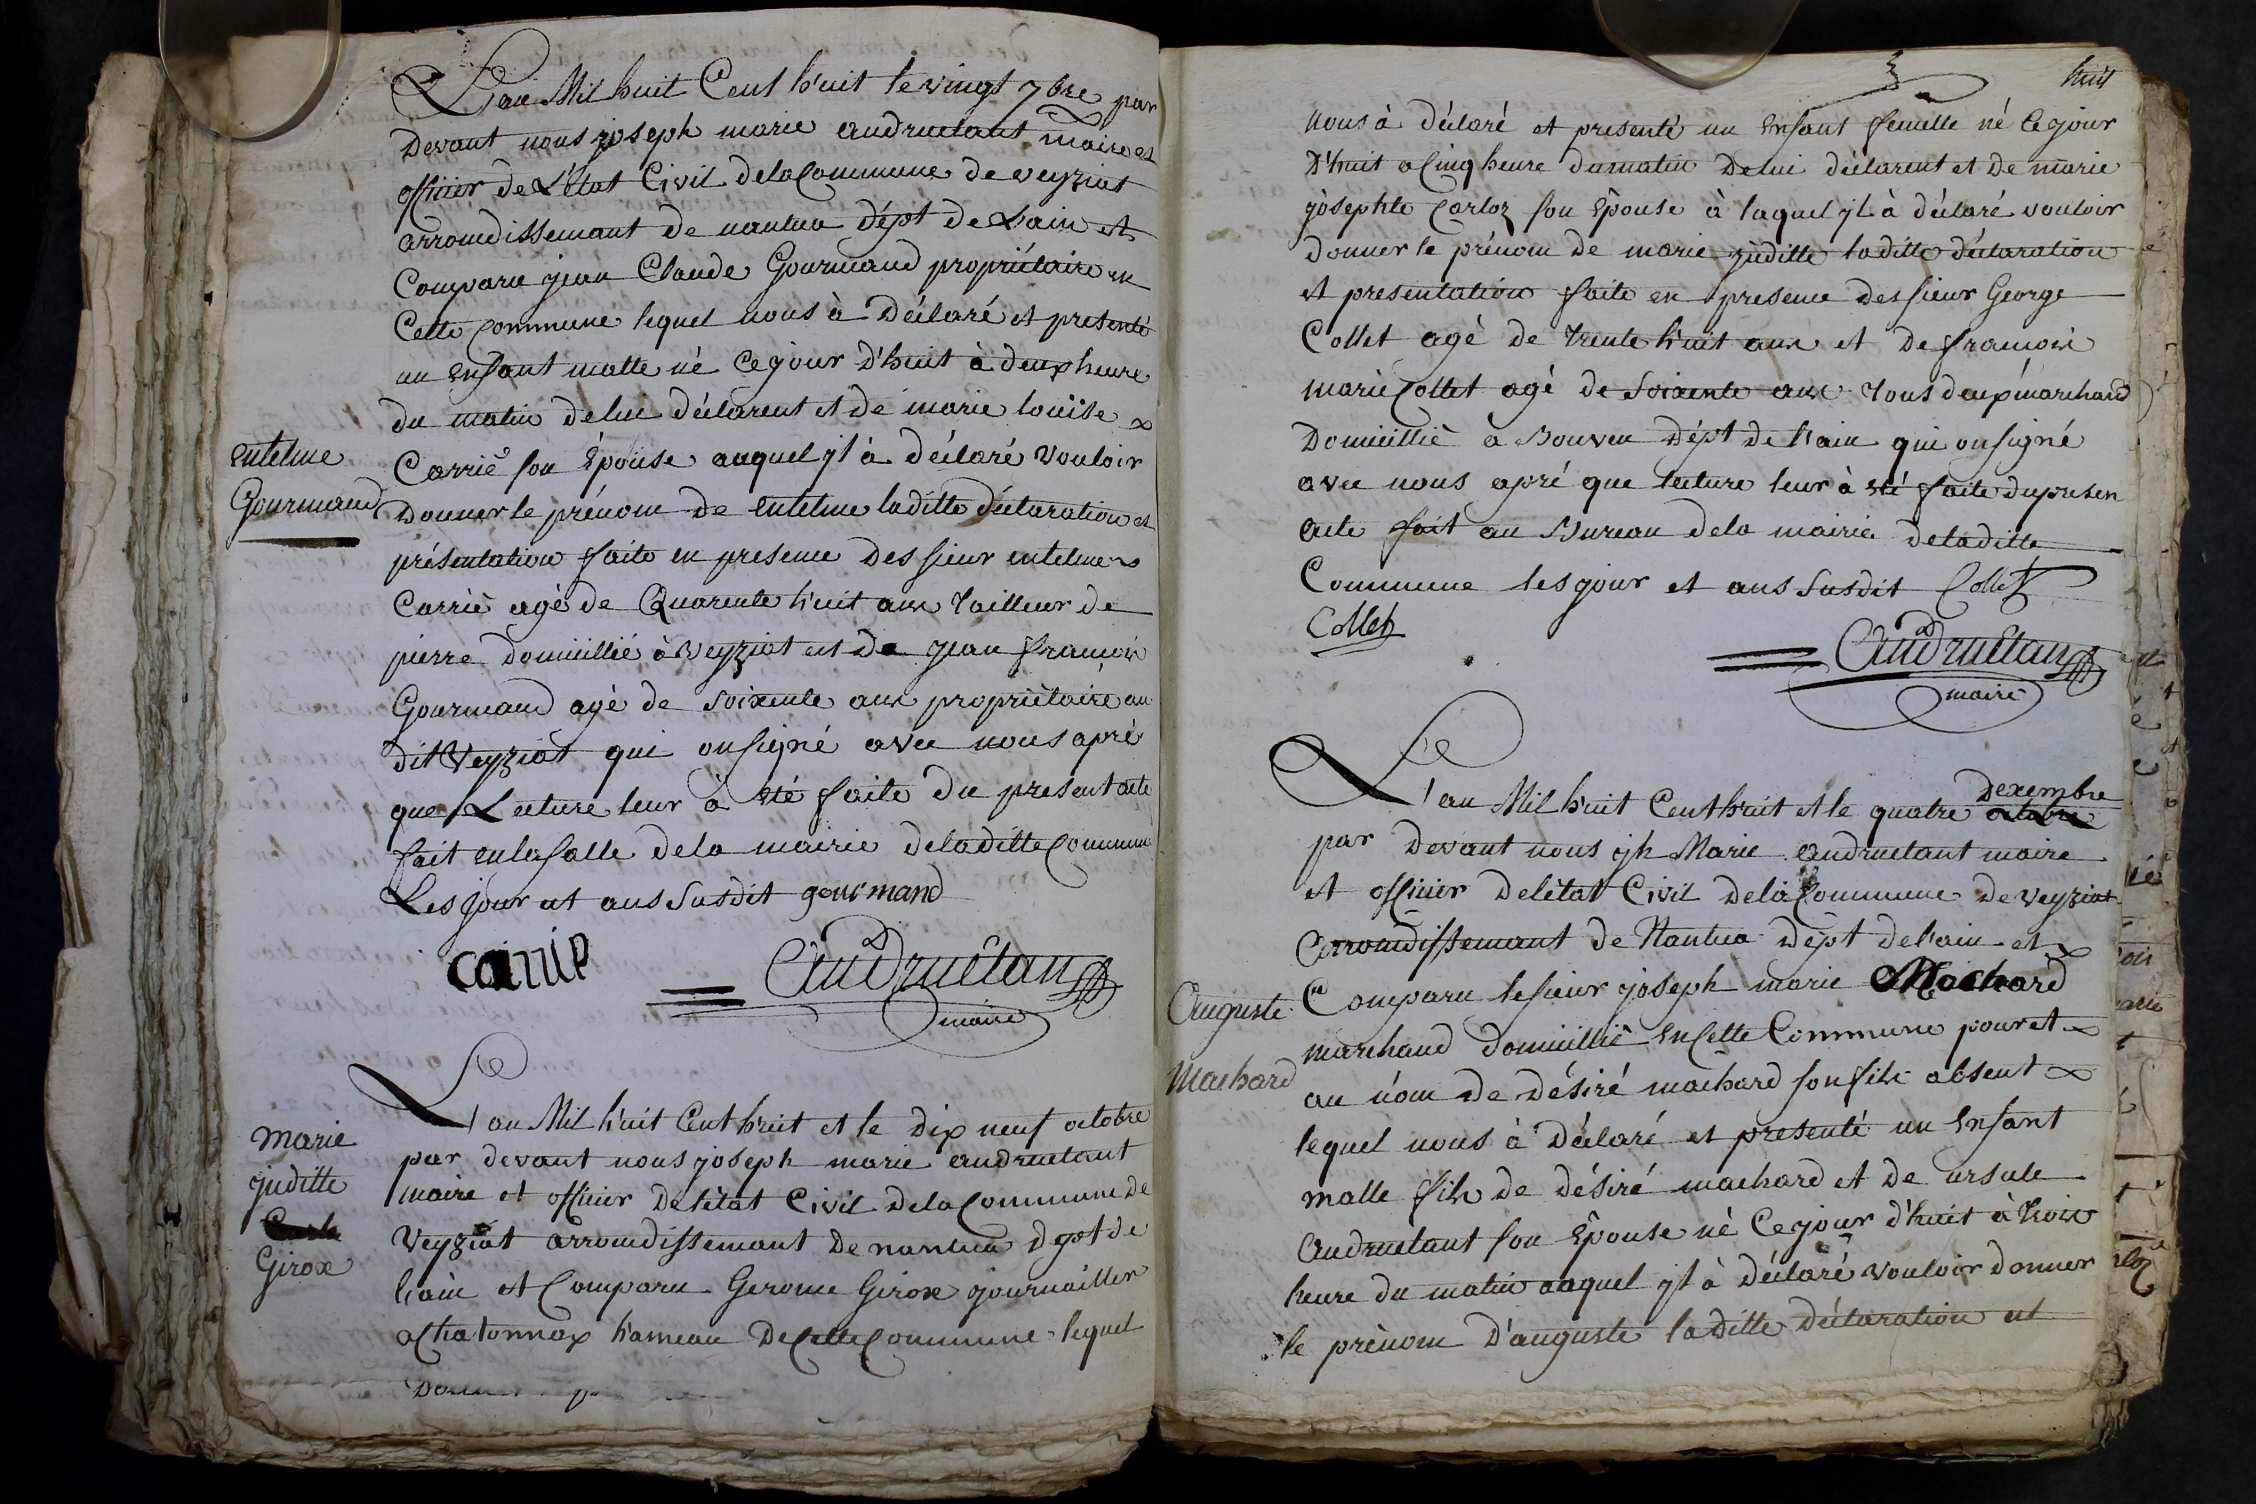 L'an Mil huit Cent huit le vingt 7bre par
Devant nous joseph marie andruetant maire et
officier de L'état Civil dela Commune de veyziat
arrondissemant de nantua dépt de Lain et
Comparu jean Claude Gourmand propriétaire en
Cette commune lequel nous à Déclaré et presenté
un enfant malle né Cejour d'huit à deux heure
du matin de lui déclarent et de marie louise
Carrié son Épouse auquel jl à déclaré vouloir
Donner le prénom de entelme laditte déclaration et
présentation faite en presence des sieur entelme
Carrié agé de Quarente huit ans tailleur de
pierre domicillié à veyziat et de jean francois
Gourmand agé de soixente ans propriétaire au
dit Veyziat qui on signé avec nous apré
que Lecture leur à été faite du present acte
fait en la salle dela mairie deladitte Commune
Les jour et ans susdit gourmand
carrie
Andruétan
maire
entelme
Gourmand
L'an Mil huit Cent huit et le dix neuf octobre
par devant nous joseph marie andruetant
maire et officier de létat Civil dela Commune de
Veyziat arrondissemant de nantua dept de
l'ain et Comparu Gerome Girox journailler
a Chatonnax hameau de Cette Commune lequel
marie
juditte
Carlo
Girox
huit
nous à déclaré et presenté un enfant femelle né Cejour
d'huit a Cinq heure du matin de lui déclarent et de marie
josephte Carloz son Épouse à laquel jl à déclaré vouloir
donner le prénom de marie juditte laditte déclaration
et presentation faite en presence des sieur George
Collet agé de trente huit ans et de francois
marie Collet agé de soixente ans tous deux marchand
Domicillié à Bouven dépt de l'ain qui on signé
avec nous apré que lecture leur à été faite du presen
acte fait au Bureau dela mairie deladitte
Commune les jour et ans susdit Collet
Collet
Andruétan
maire
L'an Mil huit Cent huit et le quatre octobre Dexembre
par Devant nous jh Marie andruetant maire
et officier delétat Civil dela Commune de veyziat
arrondissemant de Nantua dépt de l'ain et
Comparu le sieur joseph marie Machard
marchand domicillié en Cette Commune pour et
au nom de désiré machard son fils absent
lequel nous à déclaré et presenté un enfant
malle fils de désiré machard et de ursule
andruetant son Épouse né Ce jour d'huit à trois
heure du matin auquel jl à déclaré vouloir donner
le prénom d'auguste laditte déclaration et
Auguste
Machard